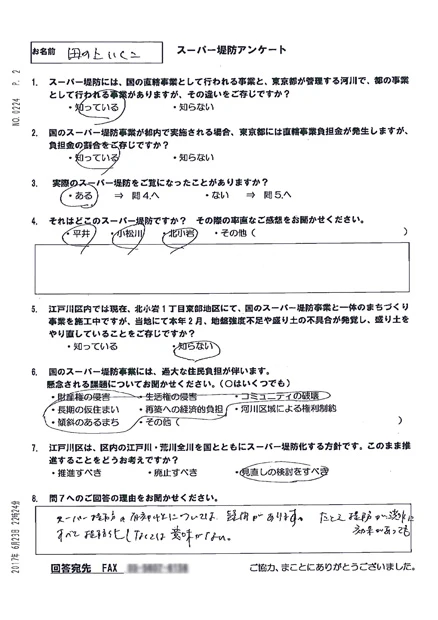 お名前 田のよいくこ スーパー堤防アンケート
1. スーパー堤防には、国の直轄事業として行われる事業と、東京都が管理する河川で、都の事業
として行われる事業がありますが、その違いをご存じですか？
・知っている ・知らない
2. 国のスーパー堤防事業が都内で実施される場合、東京都には直轄事業負担金が発生しますが、
負担金の割合をご存じですか？
・知っている ・知らない
3. 実際のスーパー堤防をご覧になったことがありますか？
・ある ⇒ 問4.へ ・ない ⇒ 問5.へ
4. それはどこのスーパー堤防ですか？ その際の率直なご感想をお聞かせください。
・平井 ・小松川 ・北小岩 ・その他（ ）
5. 江戸川区内では現在、北小岩1丁目東部地区にて、国のスーパー堤防事業と一体のまちづくり
事業を施工中ですが、当地にて本年2月、地盤強度不足や盛り土の不具合が発覚し、盛り土を
やり直していることをご存じですか？
・知っている ・知らない
6. 国のスーパー堤防事業には、過大な住民負担が伴います。
懸念される課題についてお聞かせください。（○はいくつでも）
・財産権の侵害 ・生活権の侵害 ・コミュニティの破壊
・長期の仮住まい ・再築への経済的負担 ・河川区域による権利制約
・傾斜のあるまち ・その他（ ）
7. 江戸川区は、区内の江戸川・荒川全川を国とともにスーパー堤防化する方針です。このまま推
進することをどうお考えですか？
・推進すべき ・廃止すべき ・見直しの検討をすべき
8. 問7へのご回答の理由をお聞かせください。
スーパー堤防の については 疑問があります。 たとえ堤防が
すべて堤防化しなくては意味がない。 効果があっても
回答宛先 FAX
ご協力、まことにありがとうございました。
2017年 6月23日 22時24分
NO. 1224 P. 2